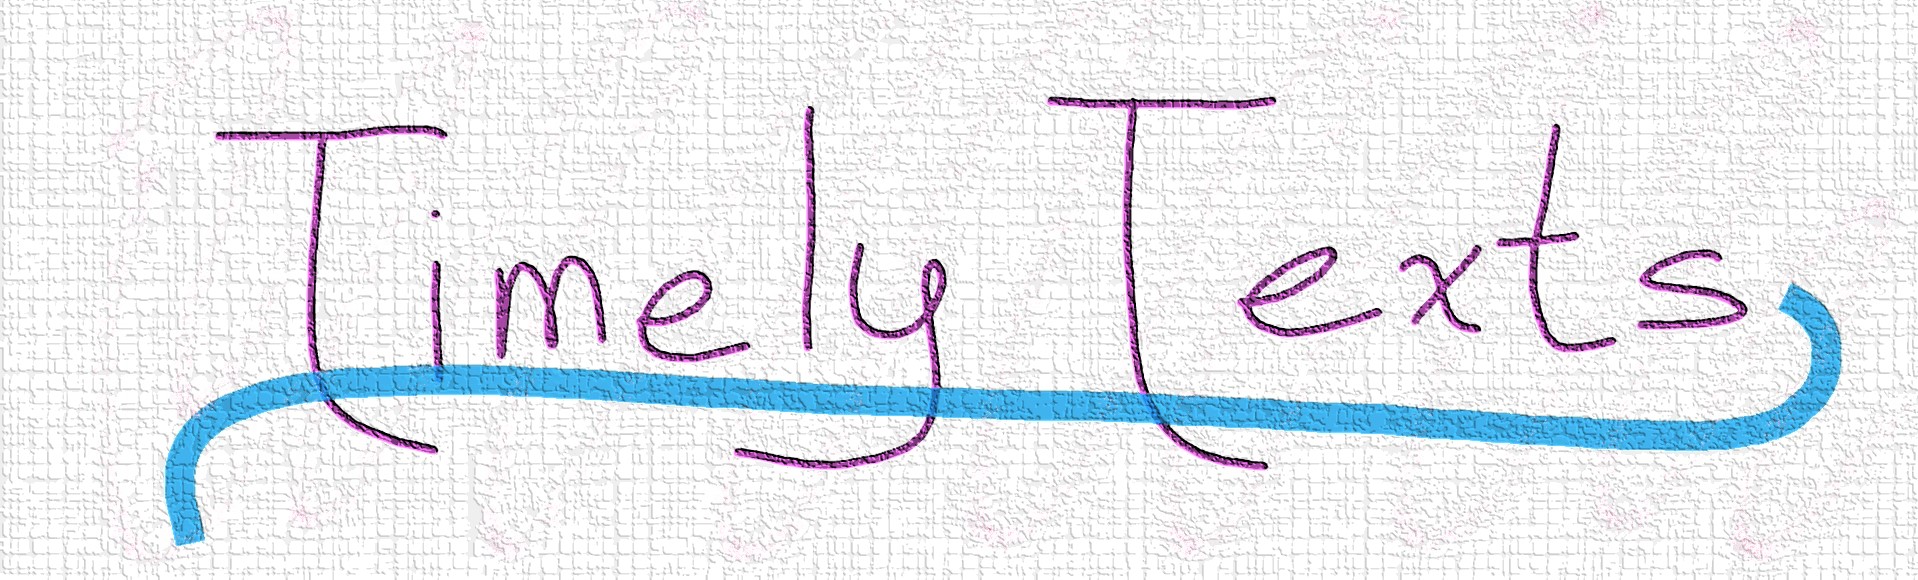 Timely Texts